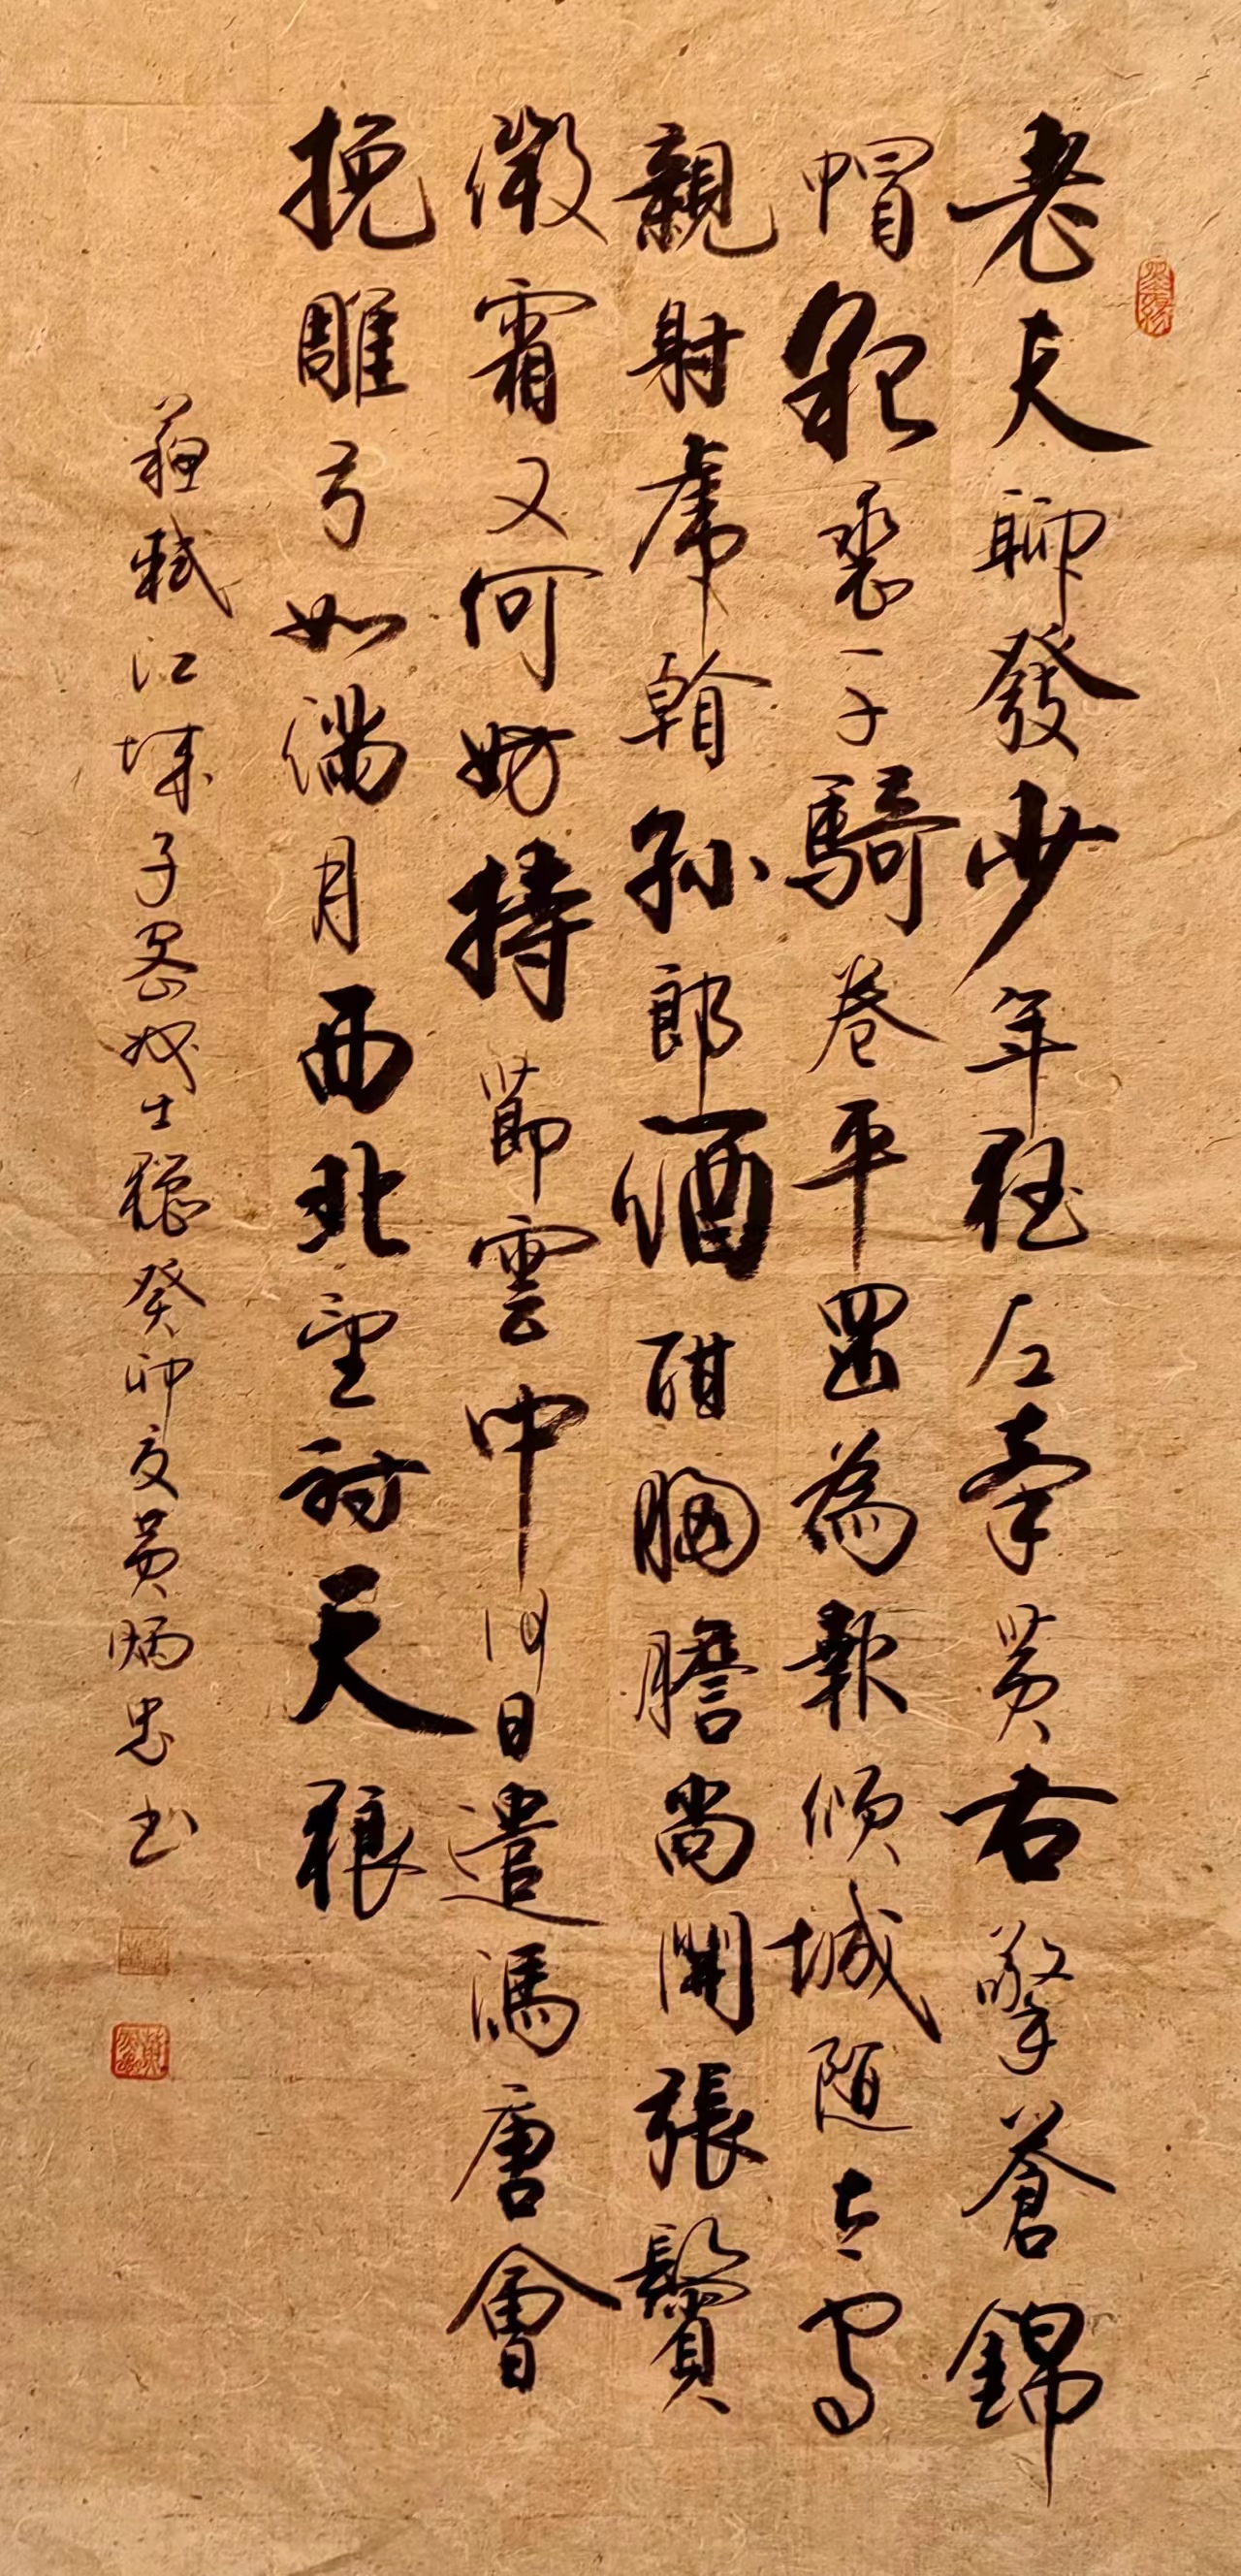 老夫聊發少年狂左牽黃右擎蒼錦
帽貂裘千騎卷平岡為報傾城隨太守
親射虎看孫郎酒酣胸膽尚開張鬢
微霜又何妨持節雲中何日遣馮唐會
挽雕弓如滿月西北望射天狼
蘇軾江城子密州出獵癸卯夏黃炳忠书